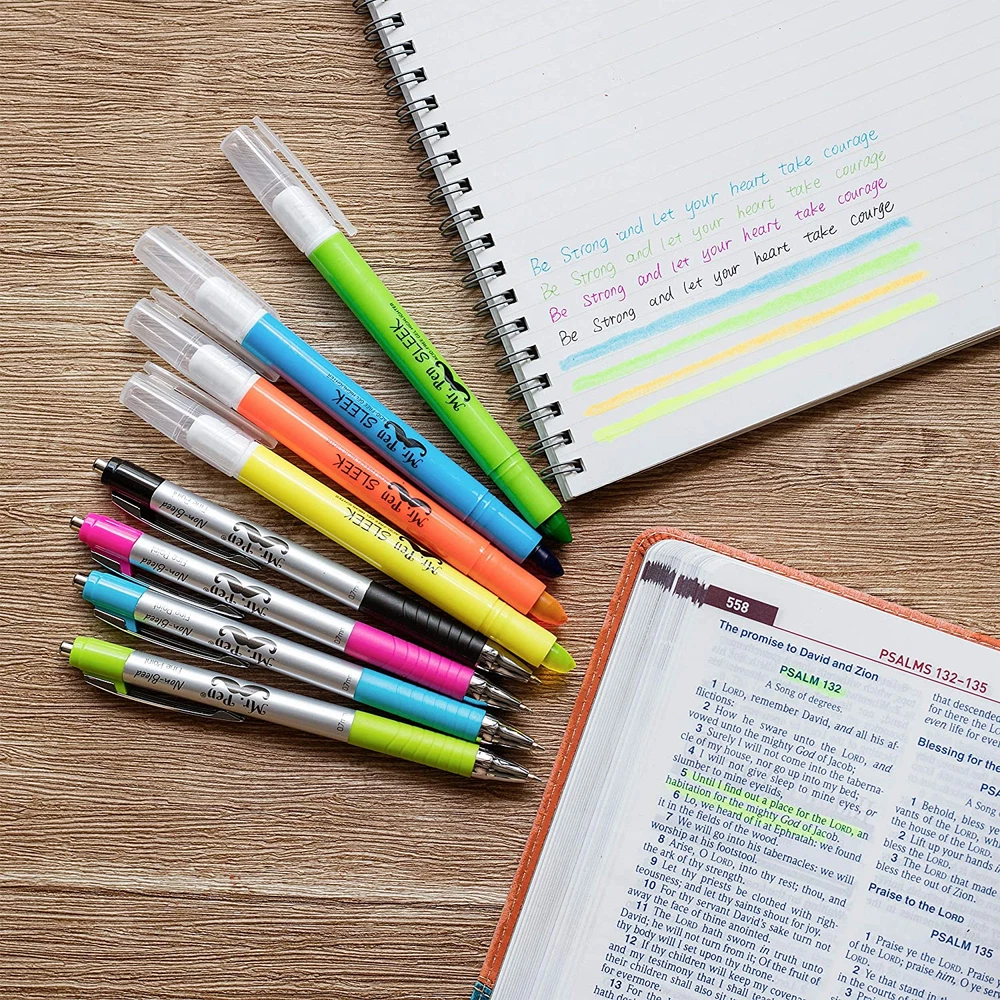 Be Strong and let your heart take courage
Be Strong and let your heart take courage
Be Strong and let your heart take courage
Be Strong and let your heart take courge
Mr. Pen SLEEK
Mr. Pen SLEEK
Mr. Pen SLEEK
Mr. Pen SLEEK
Non-Bleed Mr. Pen® 0.7m
Fine Point
Non-Bleed Mr. Pen® 0.7m
Fine Point
Non-Bleed Mr. Pen® 0.7m
Fine Point
Non-Bleed Mr. Pen® 0.7m
558
PSALMS 132–135
The promise to David and Zion
PSALM 132
A Song of degrees.
1 LORD, remember David, and all his af-
flictions:
2 How he sware unto the LORD, and
vowed unto the mighty God of Jacob;
3 Surely I will not come into the taberna-
cle of my house, nor go up into my bed;
4 I will not give sleep to mine eyes, or
slumber to mine eyelids,
5 Until I find out a place for the LORD, an
habitation for the mighty God of Jacob.
6 Lo, we heard of it at Ephratah: we found
it in the fields of the wood.
7 We will go into his tabernacles: we will
worship at his footstool.
8 Arise, O LORD, into thy rest; thou, and
the ark of thy strength.
9 Let thy priests be clothed with righ-
teousness; and let thy saints shout for joy.
10 For thy servant David's sake turn not
away the face of thine anointed.
11 The LORD hath sworn in truth unto
David; he will not turn from it; Of the fruit of
thy body will I set upon thy throne.
12 If thy children will keep my covenant
and my testimony that I shall
their children shall also sit
for evermore.
13 For the
hath
that descende
for there the Lo
even life for eve
Blessing for the
PSA
A Song
1 Behold, bless ye
vants of the LORD, wh
the house of the LORD.
2 Lift up your hands
bless the LORD.
3 The LORD that made
bless thee out of Zion.
Praise to the LORD
PSALM 135
1 Praise ye the LORD. Praise
of the LORD; praise him, O ye se
LORD.
2 Ye that stand in
in the courts
3